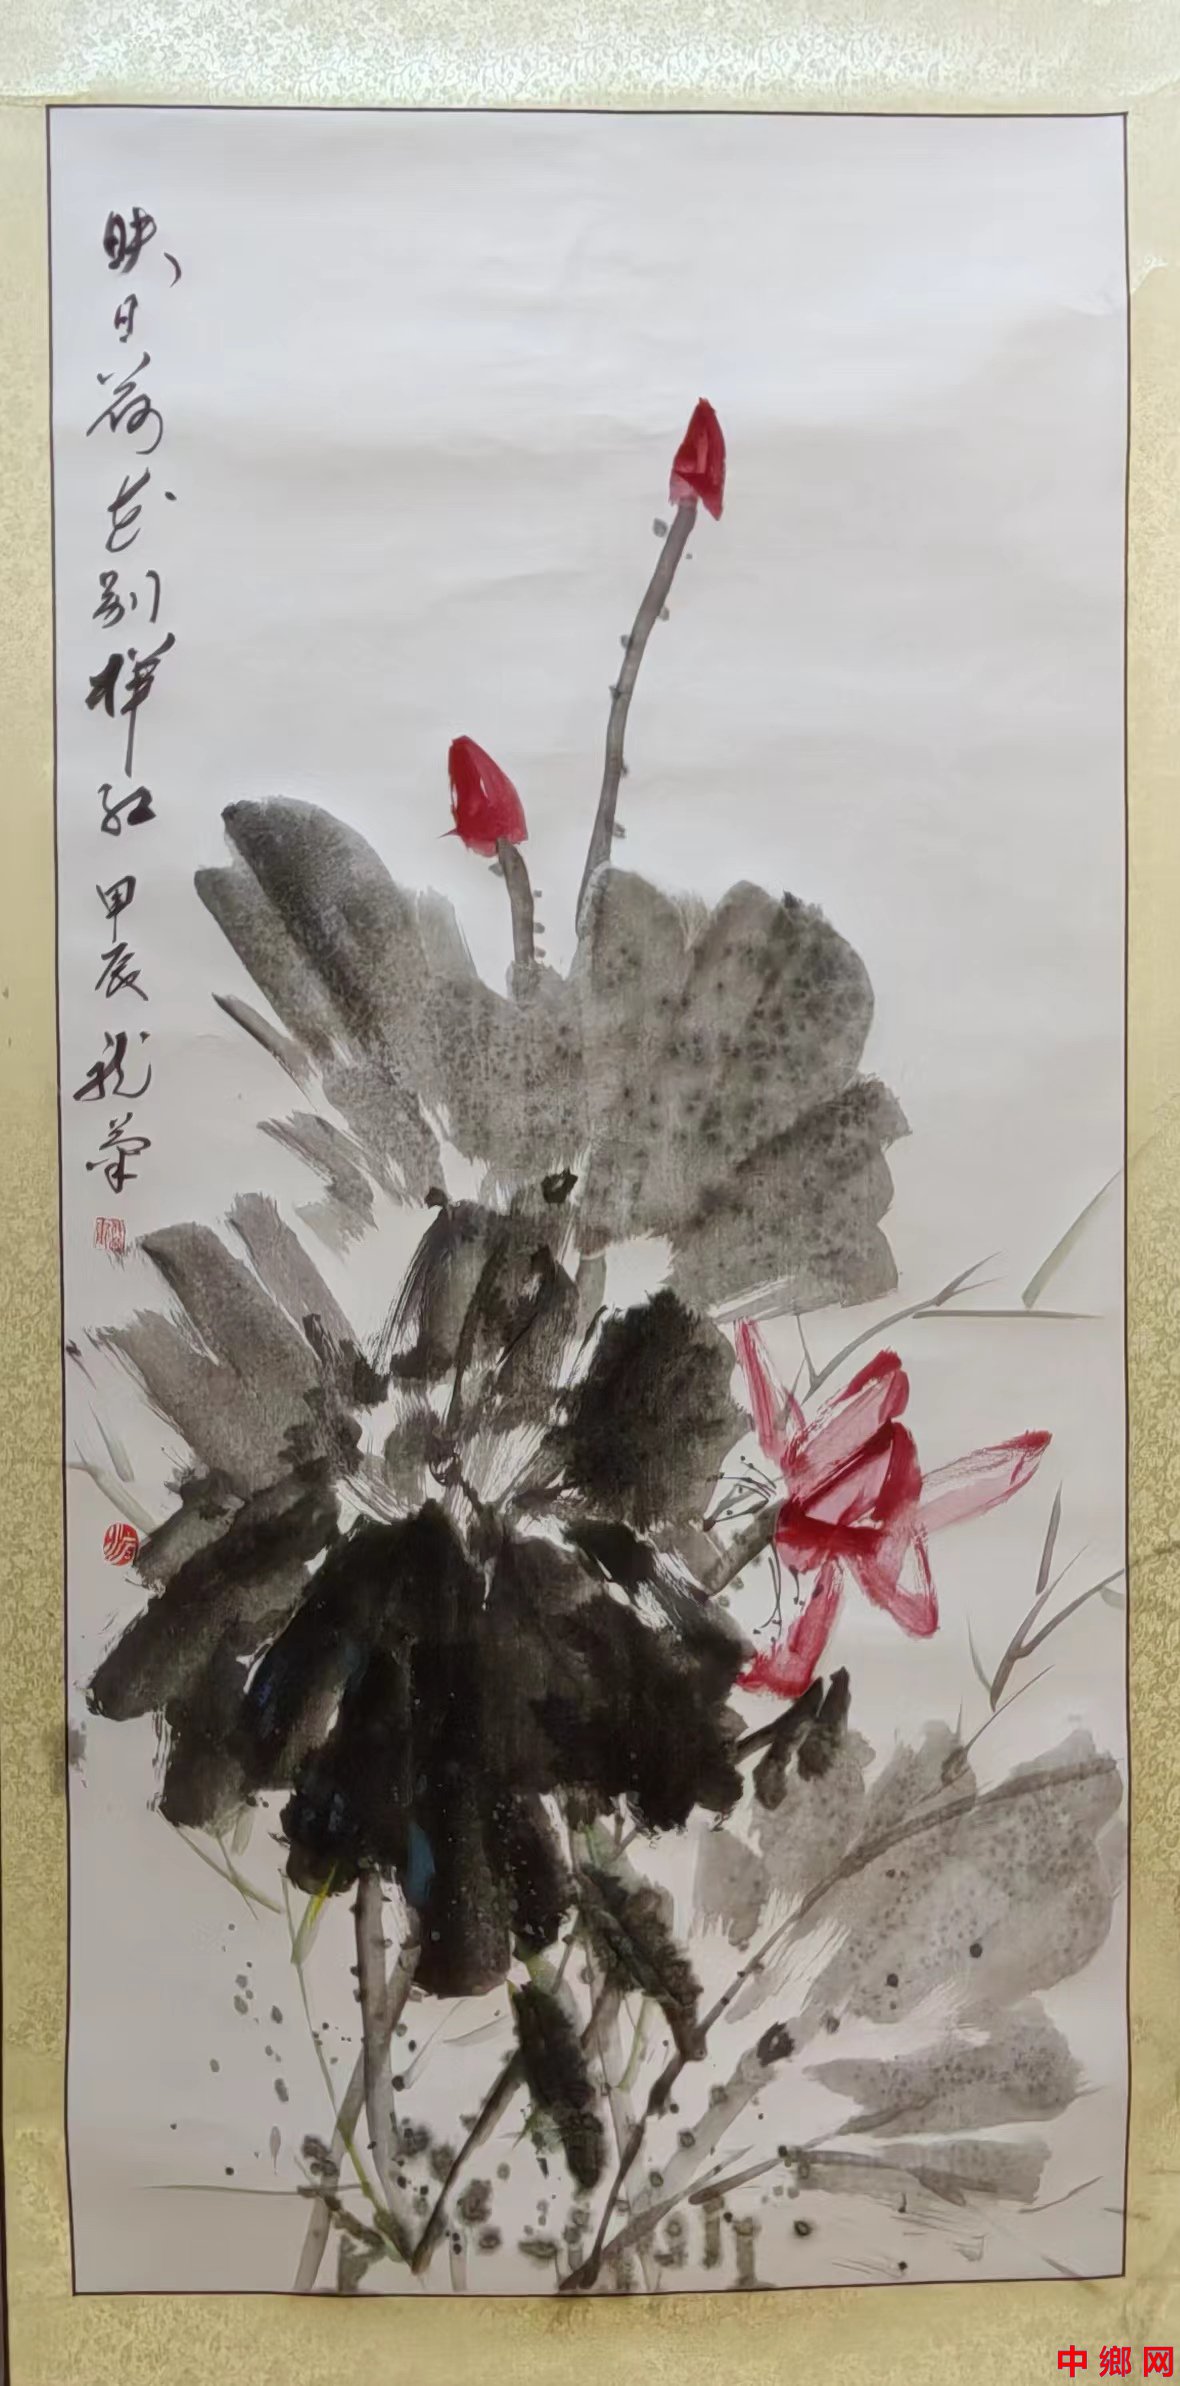 映日荷花别样红 甲辰 龙菊
中鄉网